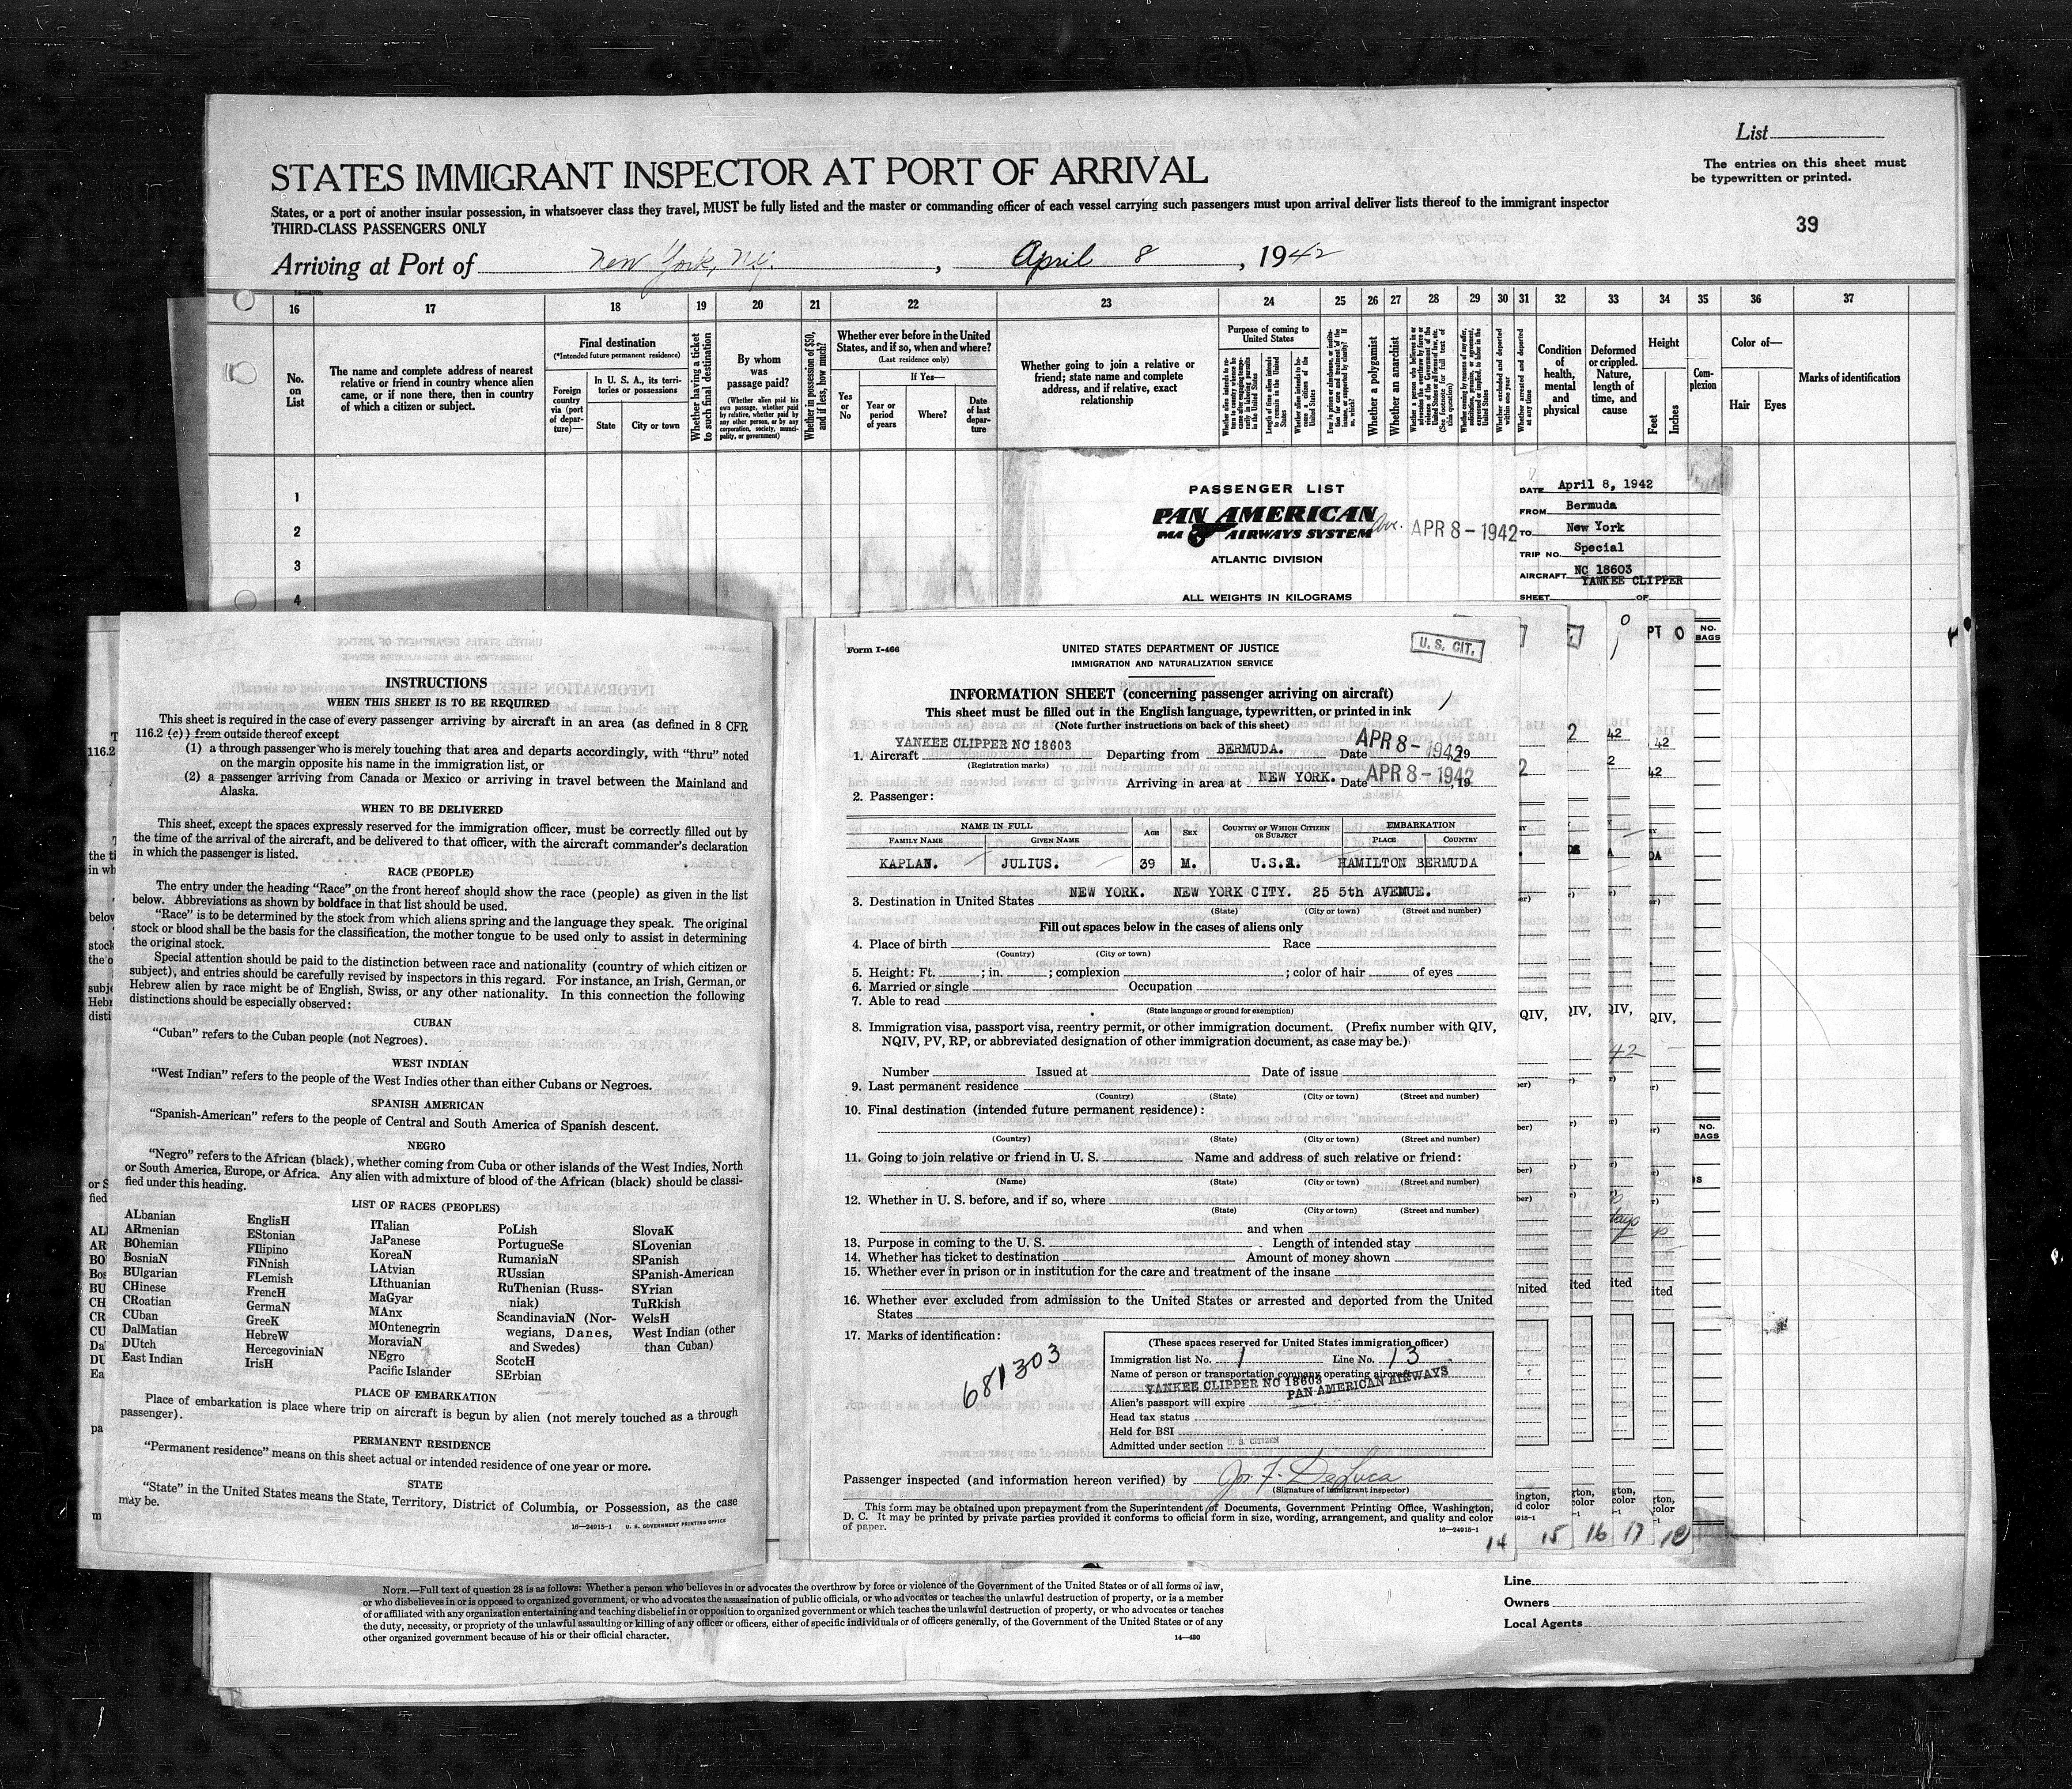 List
The entries on this sheet must
be typewritten or printed.
STATES IMMIGRANT INSPECTOR AT PORT OF ARRIVAL
States, or a port of another insular possession, in whatsoever class they travel, MUST be fully listed and the master or commanding officer of each vessel carrying such passengers must upon arrival deliver lists thereof to the immigrant inspector
THIRD-CLASS PASSENGERS ONLY
39
Arriving at Port of New York, N.Y. , April 8 , 1942
16 17 18 19 20 21 22 23 24 25 26 27 28 29 30 31 32 33 34 35 36 37
No.
on
List
The name and complete address of nearest
relative or friend in country whence alien
came, or if none there, then in country
of which a citizen or subject.
Final destination
(*Intended future permanent residence)
Foreign
country
via (port
of depar-
ture)—
In U. S. A., its terri-
tories or possessions
State
City or town
Whether having a ticket
to such final destination
By whom
was
passage paid?
(Whether alien paid his
own passage, whether paid
by relative, whether paid by
any other person, or by any
corporation, society, munici-
pality, or government)
Whether in possession of $50,
and if less, how much?
Whether ever before in the United
States, and if so, when and where?
(Last residence only)
Yes
or
No
If Yes—
Year or
period
of years
Where?
Date
of last
depar-
ture
Whether going to join a relative or
friend; state name and complete
address, and if relative, exact
relationship
Purpose of coming to
United States
Whether a polygamist
Whether an anarchist
Condition
of
health,
mental
and
physical
Deformed
or crippled.
Nature,
length of
time, and
cause
Height
Feet
Inches
Com-
plexion
Color of—
Hair
Eyes
Marks of identification
1
2
3
4
PASSENGER LIST
PAN AMERICAN
PAA AIRWAYS SYSTEM
APR 8 - 1942
ATLANTIC DIVISION
ALL WEIGHTS IN KILOGRAMS
DATE April 8, 1942
FROM Bermuda
TO New York
TRIP NO. Special
AIRCRAFT NC 18603
YANKEE CLIPPER
SHEET OF
NO.
BAGS
INSTRUCTIONS
WHEN THIS SHEET IS TO BE REQUIRED
This sheet is required in the case of every passenger arriving by aircraft in an area (as defined in 8 CFR
116.2 (c)) from outside thereof except
(1) a through passenger who is merely touching that area and departs accordingly, with “thru” noted
on the margin opposite his name in the immigration list, or
(2) a passenger arriving from Canada or Mexico or arriving in travel between the Mainland and
Alaska.
WHEN TO BE DELIVERED
This sheet, except the spaces expressly reserved for the immigration officer, must be correctly filled out by
the time of the arrival of the aircraft, and be delivered to that officer, with the aircraft commander's declaration
in which the passenger is listed.
RACE (PEOPLE)
The entry under the heading “Race” on the front hereof should show the race (people) as given in the list
below. Abbreviations as shown by boldface in that list should be used.
“Race” is to be determined by the stock from which aliens spring and the language they speak. The original
stock or blood shall be the basis for the classification, the mother tongue to be used only to assist in determining
the original stock.
Special attention should be paid to the distinction between race and nationality (country of which citizen or
subject), and entries should be carefully revised by inspectors in this regard. For instance, an Irish, German, or
Hebrew alien by race might be of English, Swiss, or any other nationality. In this connection the following
distinctions should be especially observed:
CUBAN
“Cuban” refers to the Cuban people (not Negroes).
WEST INDIAN
“West Indian” refers to the people of the West Indies other than either Cubans or Negroes.
SPANISH AMERICAN
“Spanish-American” refers to the people of Central and South America of Spanish descent.
NEGRO
“Negro” refers to the African (black), whether coming from Cuba or other islands of the West Indies, North
or South America, Europe, or Africa. Any alien with admixture of blood of the African (black) should be classi-
fied under this heading.
LIST OF RACES (PEOPLES)
ALbanian
ARmenian
BOhemian
BosniaN
BUlgarian
CHinese
CRoatian
CUban
DalMatian
DUtch
East Indian
EnglisH
EStonian
FIlipino
FiNnish
FLemish
FrencH
GermaN
GreeK
HebreW
HercegoviniaN
IrisH
ITalian
JaPanese
KoreaN
LAtvian
LIthuanian
MaGyar
MAnx
MOntenegrin
MoraviaN
NEgro
Pacific Islander
PoLish
PortugueSe
RumaniaN
RUssian
RuThenian (Russ-
niak)
ScandinaviaN (Nor-
wegians, Danes,
and Swedes)
ScotcH
SErbian
SlovaK
SLovenian
SPanish
SPanish-American
SYrian
TuRkish
WelsH
West Indian (other
than Cuban)
PLACE OF EMBARKATION
Place of embarkation is place where trip on aircraft is begun by alien (not merely touched as a through
passenger).
PERMANENT RESIDENCE
“Permanent residence” means on this sheet actual or intended residence of one year or more.
STATE
“State” in the United States means the State, Territory, District of Columbia, or Possession, as the case
may be.
16—24915-1 U. S. GOVERNMENT PRINTING OFFICE
Form I-466
UNITED STATES DEPARTMENT OF JUSTICE
IMMIGRATION AND NATURALIZATION SERVICE
U. S. CIT.
INFORMATION SHEET (concerning passenger arriving on aircraft)
This sheet must be filled out in the English language, typewritten, or printed in ink
(Note further instructions on back of this sheet)
1. Aircraft YANKEE CLIPPER NC 18603 Departing from BERMUDA. Date APR 8 - 1942, 19
(Registration marks)
Arriving in area at NEW YORK. Date APR 8 - 1942, 19
2. Passenger:
NAME IN FULL
FAMILY NAME GIVEN NAME
AGE
SEX
COUNTRY OF WHICH CITIZEN
OR SUBJECT
EMBARKATION
PLACE COUNTRY
KAPLAN. JULIUS. 39 M. U.S.A. HAMILTON BERMUDA
3. Destination in United States NEW YORK. NEW YORK CITY. 25 5th AVENUE.
(State) (City or town) (Street and number)
Fill out spaces below in the cases of aliens only
4. Place of birth Race
(Country) (City or town)
5. Height: Ft. ; in. ; complexion ; color of hair of eyes
6. Married or single Occupation
7. Able to read
(State language or ground for exemption)
8. Immigration visa, passport visa, reentry permit, or other immigration document. (Prefix number with QIV,
NQIV, PV, RP, or abbreviated designation of other immigration document, as case may be.)
Number Issued at Date of issue
9. Last permanent residence
(Country) (State) (City or town) (Street and number)
10. Final destination (intended future permanent residence):
(Country) (State) (City or town) (Street and number)
11. Going to join relative or friend in U. S. Name and address of such relative or friend:
(Name) (State) (City or town) (Street and number)
12. Whether in U. S. before, and if so, where
(State) (City or town) (Street and number)
and when
13. Purpose in coming to the U. S. Length of intended stay
14. Whether has ticket to destination Amount of money shown
15. Whether ever in prison or in institution for the care and treatment of the insane
16. Whether ever excluded from admission to the United States or arrested and deported from the United
States
17. Marks of identification:
681303
(These spaces reserved for United States immigration officer)
Immigration list No. 1 Line No. 13
Name of person or transportation company operating aircraft
YANKEE CLIPPER NC 18603 PAN AMERICAN AIRWAYS
Alien's passport will expire
Head tax status
Held for BSI
Admitted under section U. S. CITIZEN
Passenger inspected (and information hereon verified) by Jos. F. DeLuca
(Signature of immigrant inspector)
This form may be obtained upon prepayment from the Superintendent of Documents, Government Printing Office, Washington,
D. C. It may be printed by private parties provided it conforms to official form in size, wording, arrangement, and quality and color
of paper.
16—24915-1
14 15 16 17 18
NOTE.—Full text of question 28 is as follows: Whether a person who believes in or advocates the overthrow by force or violence of the Government of the United States or of all forms of law,
or who disbelieves in or is opposed to organized government, or who advocates the assassination of public officials, or who advocates or teaches the unlawful destruction of property, or is a member
of or affiliated with any organization entertaining and teaching disbelief in or opposition to organized government or which teaches the unlawful destruction of property, or who advocates or teaches
the duty, necessity, or propriety of the unlawful assaulting or killing of any officer or officers, either of specific individuals or of officers generally, of the Government of the United States or of any
other organized government because of his or their official character.
14—430
Line
Owners
Local Agents